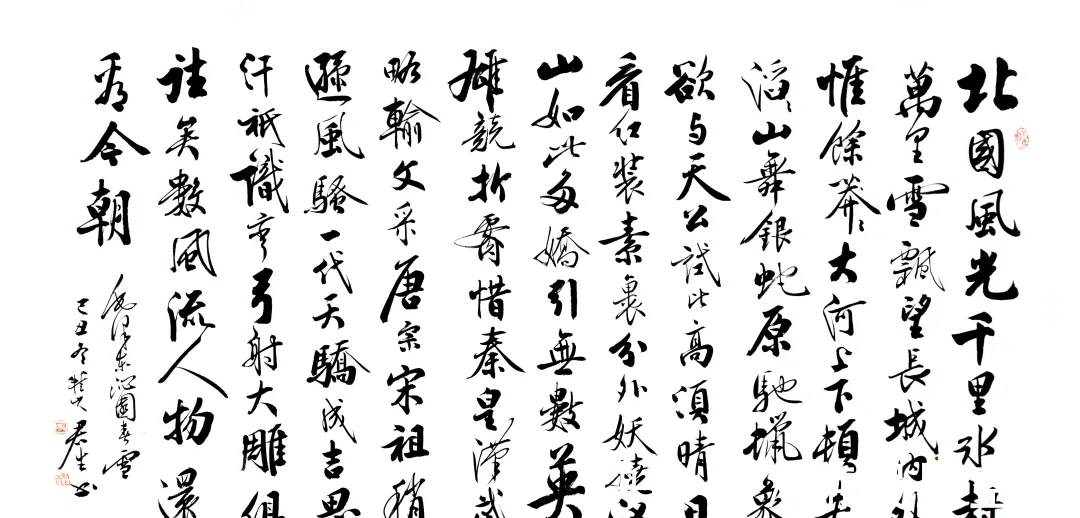 北國風光千里冰封
萬里雪飄望長城內外
惟餘莽〻大河上下頓失
滔〻山舞銀蛇原馳蠟象
欲与天公試比高須晴日
看红裝素裹分外妖嬈江
山如此多嬌引無數英
雄競折腰惜秦皇漢武
略輸文采唐宗宋祖稍
遜風騷一代天驕成吉思
汗祇識彎弓射大雕俱
往矣數風流人物還
看今朝
毛澤東沁園春雪
己丑冬 君生书